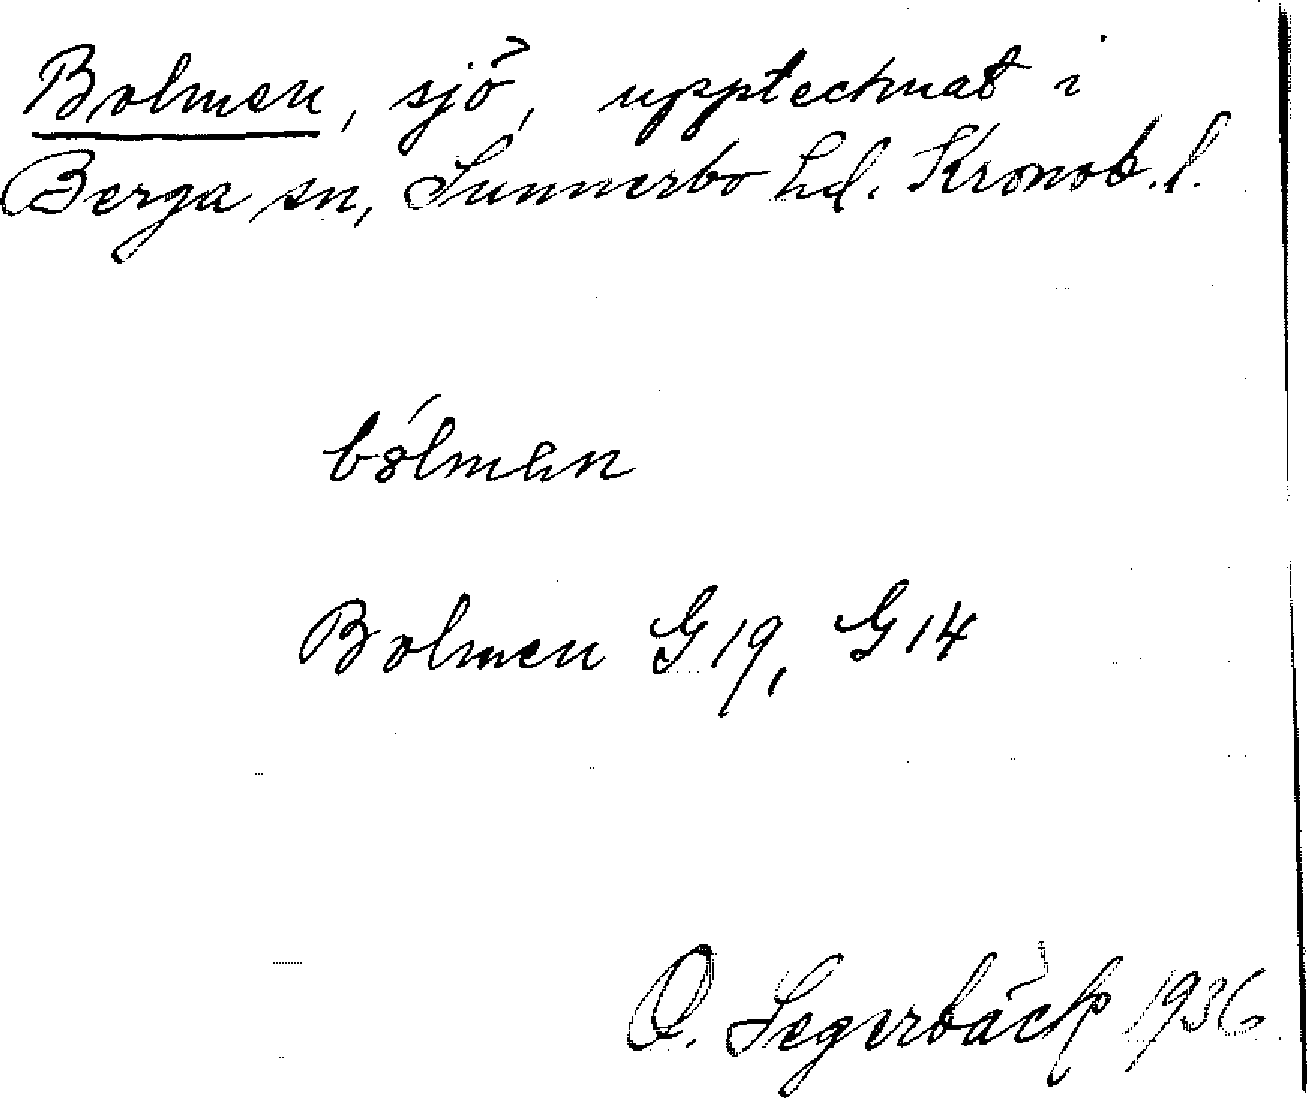 Bolmen, sjö, upptecknat i
Berga sn, Sunnerbo hd. Kronob. l.
bólmən
Bolmen G19, G14
O. Segerbäck 1936